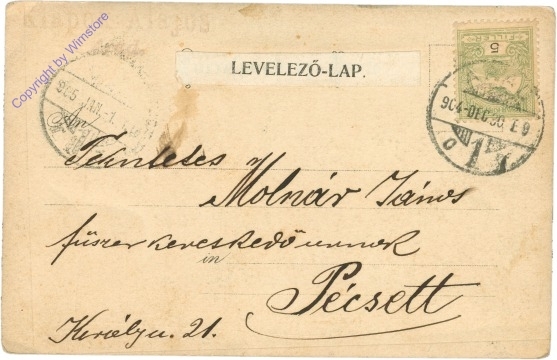 Klapka Alajos
Copyright by Wimstore
LEVELEZŐ-LAP.
FILLER
5
905 JAN. 1.
904-DEC 30 E 9
Tekintetes
Molnár János
fűszerkereskedő urnak
in
Pécsett
Király u. 21.